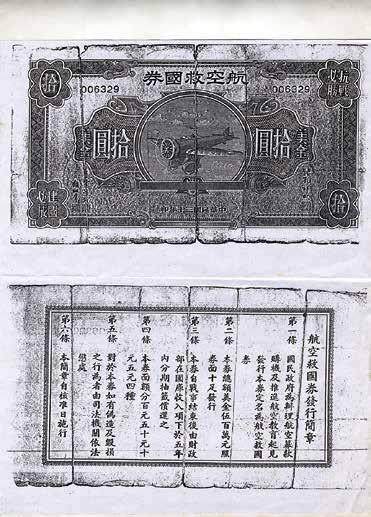 航空救國券
006329
006329
抗戰必勝
拾
美金
拾圓
美金
拾圓
建國必成
拾
航空救國券發行簡章
第一條 國民政府為辦理航空募款
購機及推進航空教育起見
發行本券定名為航空救國
券
第二條 本券總額美金伍百萬元照
券面十足發行
第三條 本券自戰事結束後由財政
部在國庫收入項下於五年
內分期抽籤償還之
第四條 本券面額分百元五十元十
元五元四種
第五條 對於本券如有偽造及毀損
之行為者由司法機關依法
懲處
第六條 本簡章自核准日施行